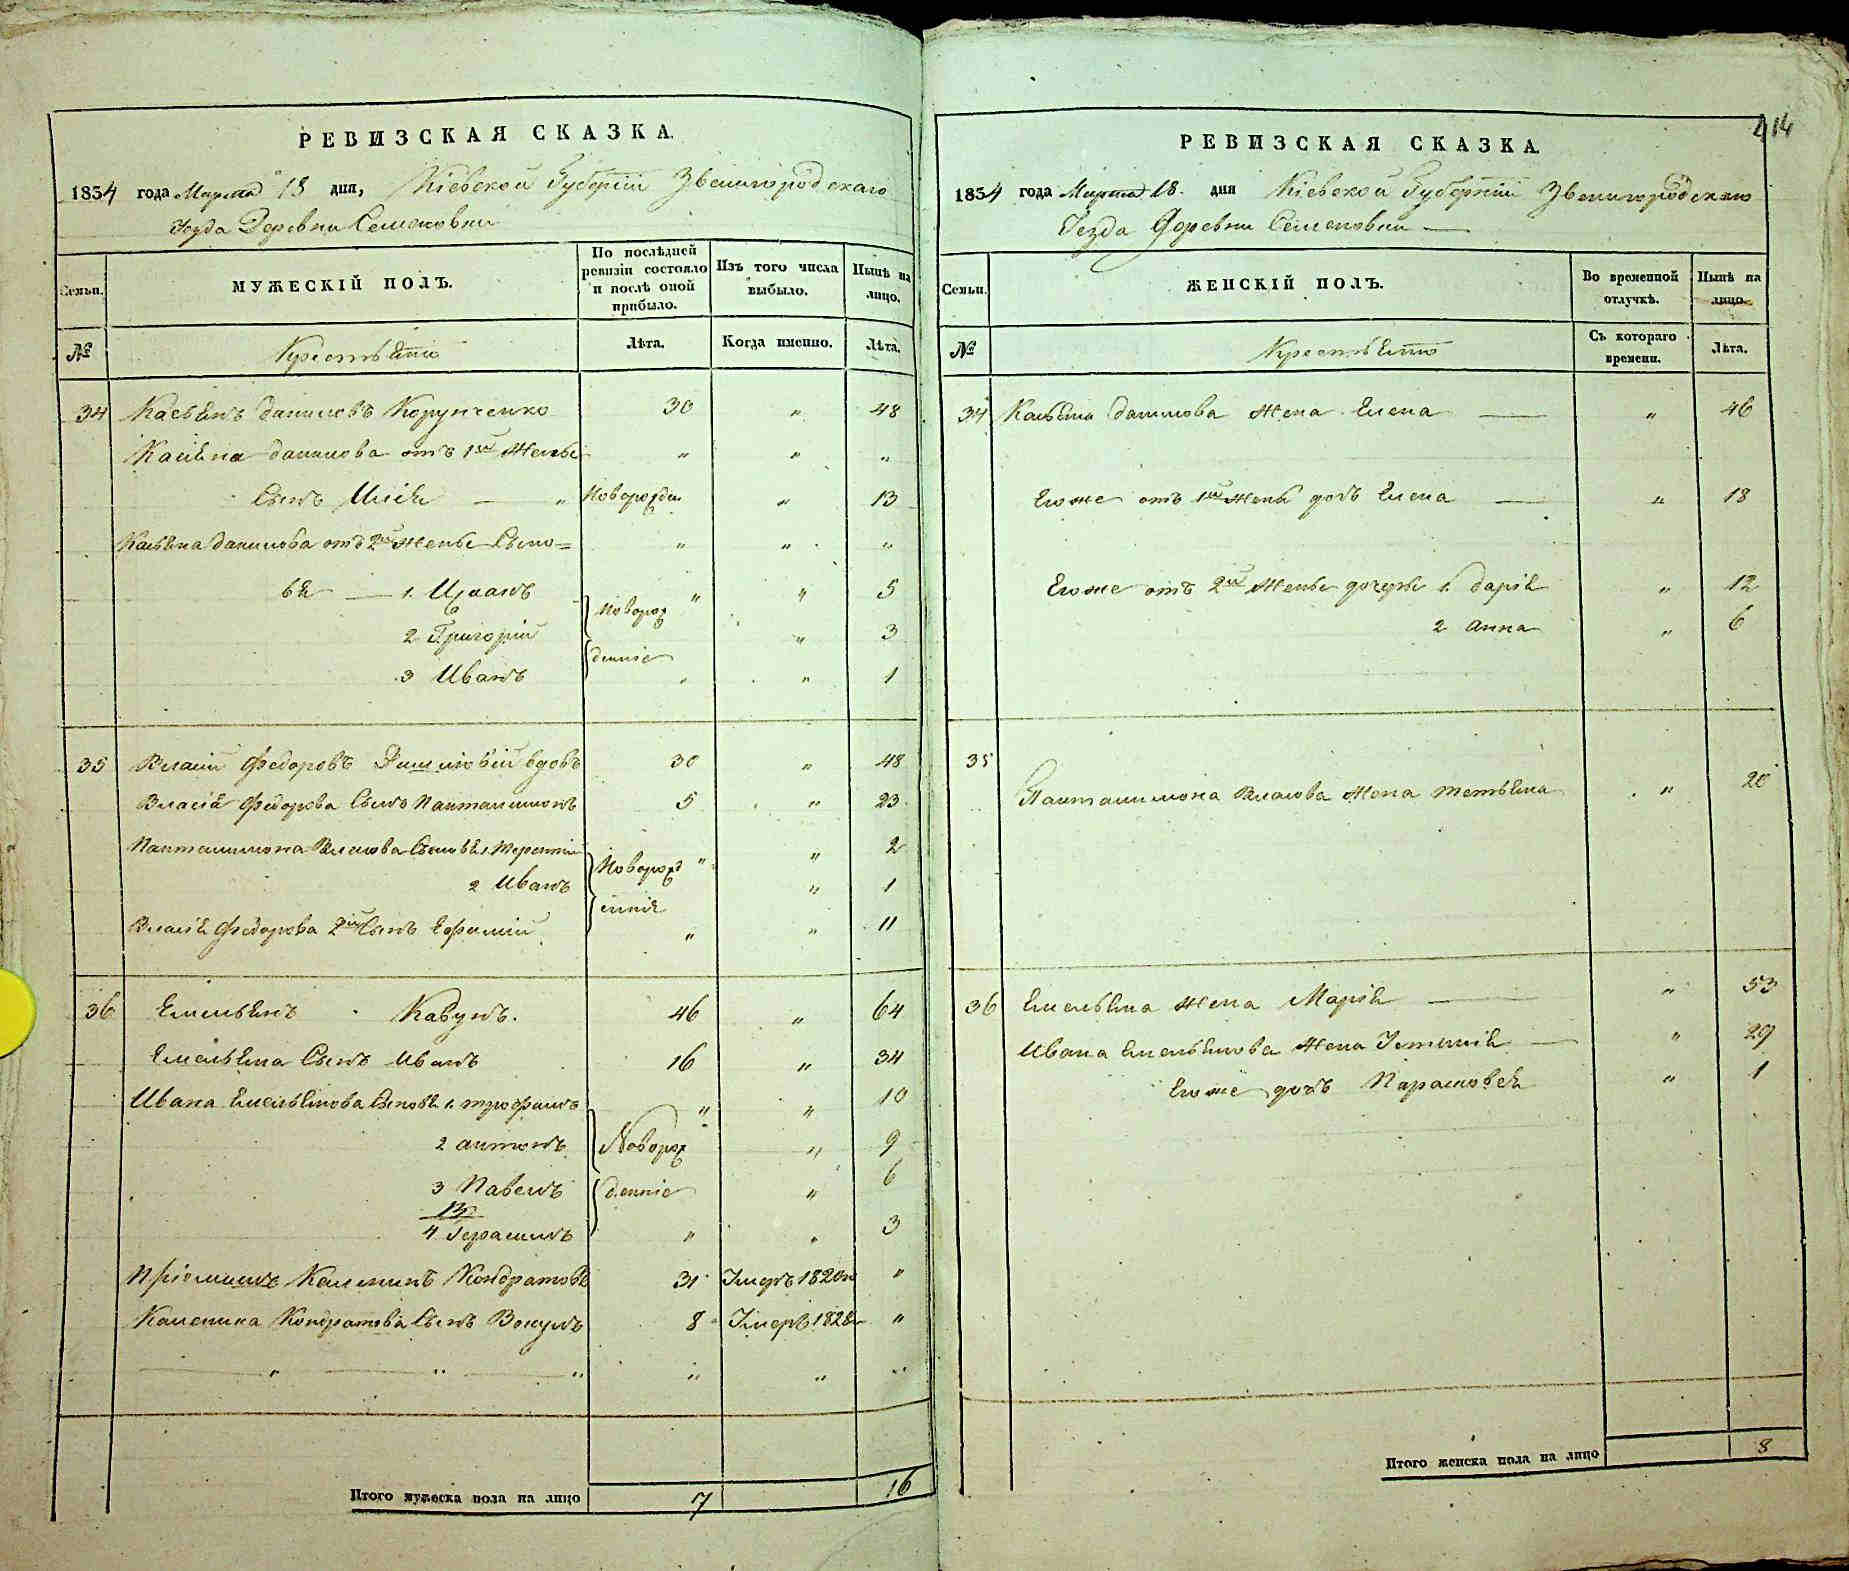 РЕВИЗСКАЯ СКАЗКА.
1834 года Марта 18 дня, Кіевской Губерніи Звенигородскаго
Уезда Деревни Семеновки
Семьи.
МУЖЕСКІЙ ПОЛЪ.
По послѣдней ревизіи состояло и послѣ оной прибыло.
Изъ того числа выбыло.
Нынѣ на лицо.
№ Крестьяне Лѣта. Когда именно. Лѣта.
34 Касьянъ Даниловъ 30 " 48
Касьяна Данилова отъ 1й Жены " " "
Сынъ " Новорожден. " 13
Касьяна Данилова отъ 2й Жены Сыно= " " "
вя 1. " " 5
2 Григорій Новорож " 3
3 Иванъ денніе " " 1
35 Власій Федоровъ вдовъ 30 " 48
Власія Федорова Сынъ Пантелимонъ 5 " 23
Пантелимона Власова Сыновя 1. Терентій " " 2
2 Иванъ Новорожд " 1
Власія Федорова 2й Сынъ енніе " " 11
36 Емельянъ Кавунъ. 46 " 64
Емельяна Сынъ Иванъ 16 " 34
Ивана Емельянова Сыновя 1. Трофимъ " " 10
2 Антонъ Новорож " 9
3 Павелъ денніе " 6
13
4 Герасимъ " " 3
Пріемышъ Кондратовъ 31 Умеръ 1820 "
Кондратова Сынъ 8 Умеръ 1828 "
" " " " " "
Итого мужеска пола на лицо 7 16
414
РЕВИЗСКАЯ СКАЗКА.
1834 года Марта 18. дня Кіевской Губерніи Звенигородскаго
Уезда Деревни Семеновки
Семьи.
ЖЕНСКІЙ ПОЛЪ.
Во временной отлучкѣ.
Нынѣ на лицо.
№ Крестьяне Съ котораго времени. Лѣта.
34 Касьяна Данилова Жена Елена " 46
Егоже отъ 1й Жены дочь Елена " 18
Егоже отъ 2й Жены дочеры 1. Дарія " 12
2 Анна " 6
35
Пантелимона Власова Жена Тетьяна " 20
36 Емельяна Жена Марія " 53
Ивана Емельянова Жена Устинія " 29
Егоже дочь Парасковея " 1
Итого женска пола на лицо 8